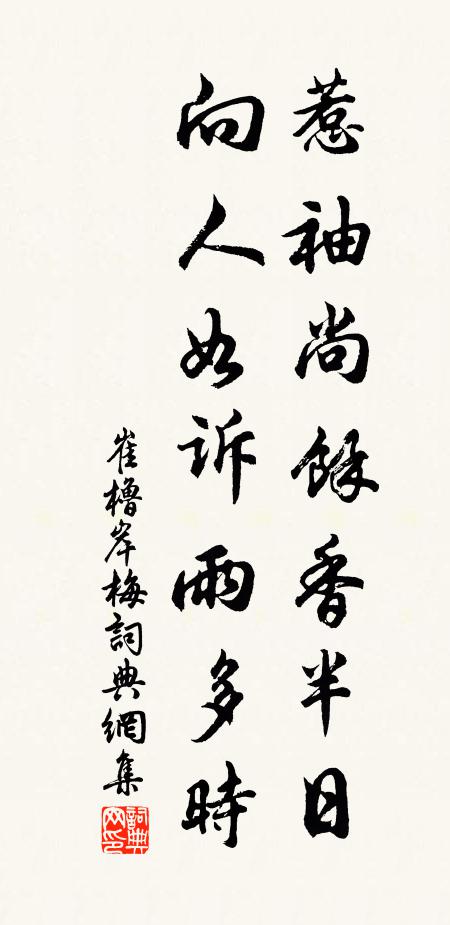 惹袖尚餘香半日
向人如訴雨多時
崔櫓岸梅詞典網集
詞典網印